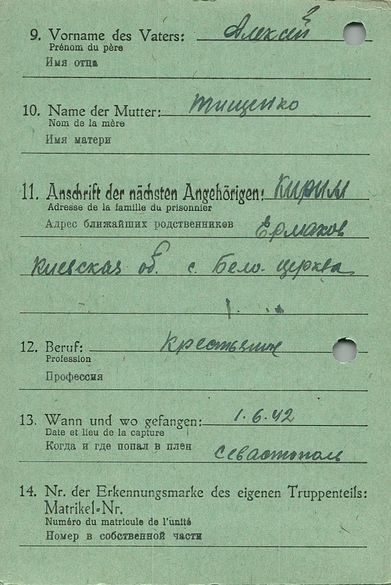 9. Vorname des Vaters: Алексей
Prénom du père
Имя отца
10. Name der Mutter: Тищенко
Nom de la mère
Имя матери
11. Anschrift der nächsten Angehörigen: Кирим
Adresse de la famille du prisonnier
Адрес ближайших родственников Ермаков
Киевская об. с. Бело. церква
12. Beruf: Крестьянин
Profession
Профессия
13. Wann und wo gefangen: 1.6.42
Date et lieu de la capture
Когда и где попал в плен Севастополь
14. Nr. der Erkennungsmarke des eigenen Truppenteils:
Matrikel-Nr.
Numéro du matricule de l'unité
Номер в собственной части